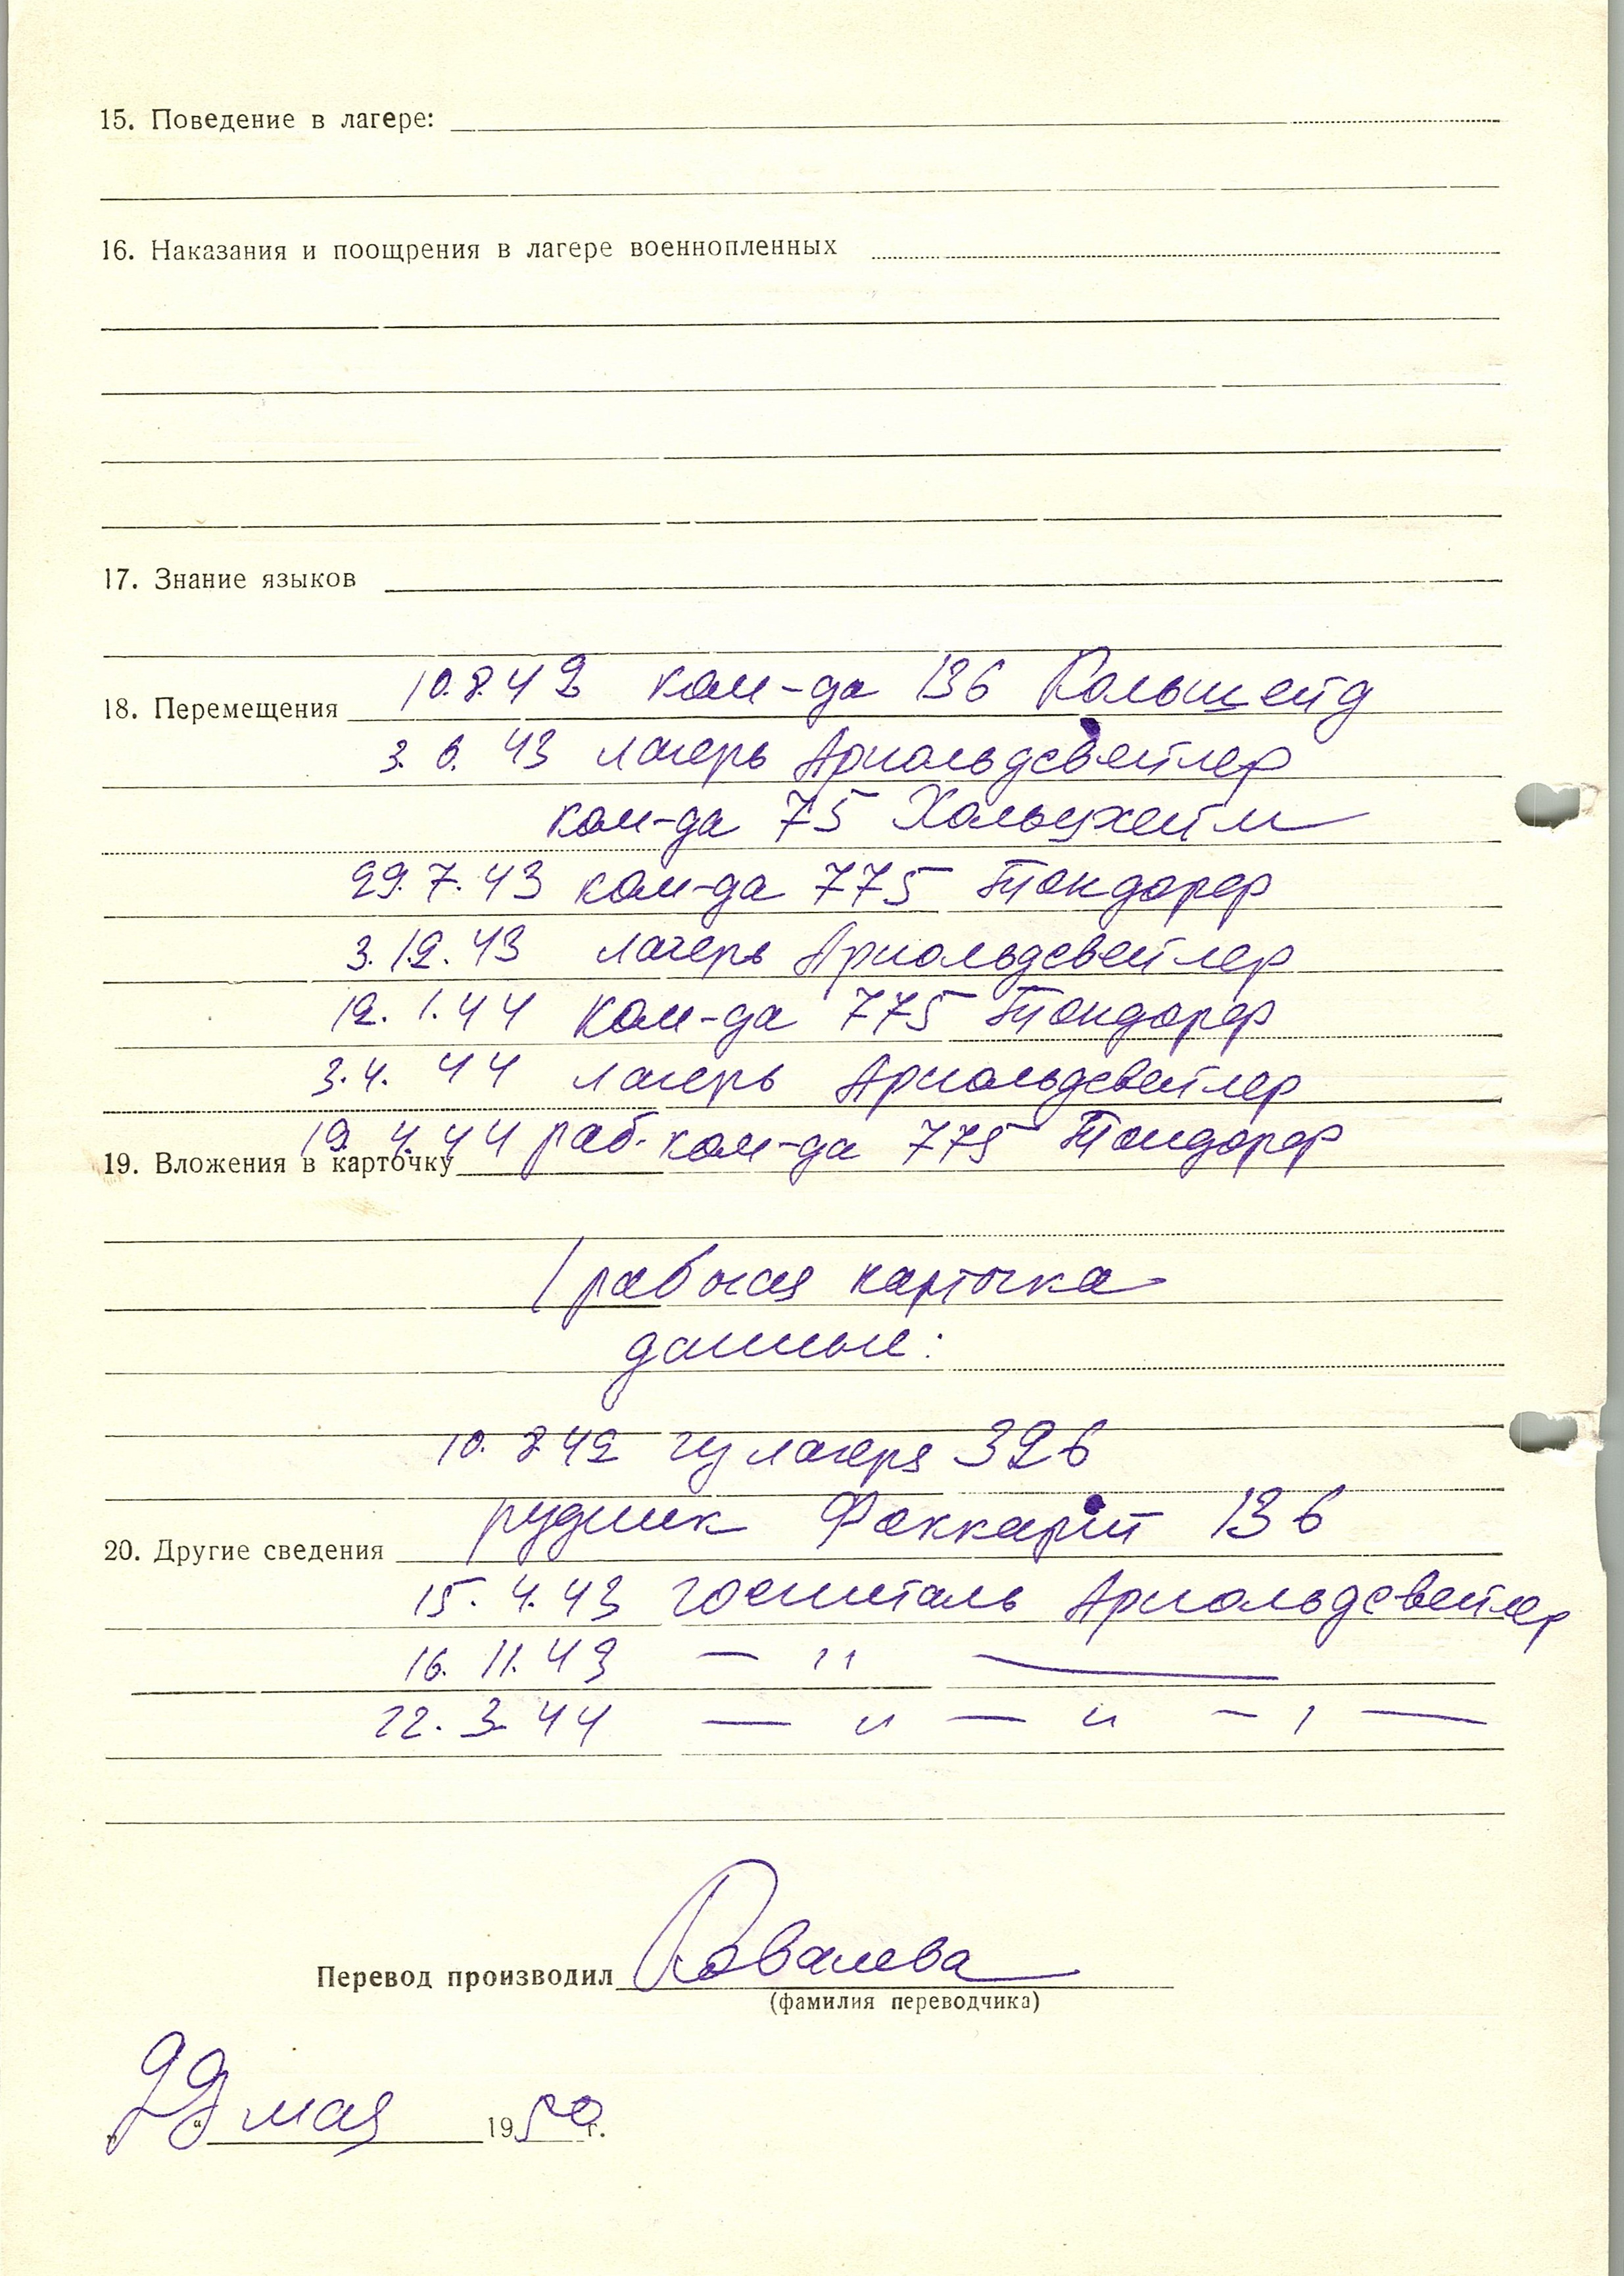 15. Поведение в лагере:
16. Наказания и поощрения в лагере военнопленных
17. Знание языков
10.8.42 ком-да 136 Кольшейд
18. Перемещения
3. 6. 43 лагерь Арнольдсвейлер
ком-да 75 Хольцхейм
29. 7. 43 ком-да 775 Тондорф
3. 12. 43 лагерь Арнольдсвейлер
12. 1. 44 ком-да 775 Тондорф
3. 4. 44 лагерь Арнольдсвейлер
19. 4. 44 раб. ком-да 775 Тондорф
19. Вложения в карточку
1 рабочая карточка
данные:
10. 8 42 из лагеря 326
рудник Фоккарт 136
20. Другие сведения
15. 4. 43 госпиталь Арнольдсвейлер
16. 11. 43 — " —
22. 3. 44 — " — " — " —
Перевод производил Ковалева
(фамилия переводчика)
"22" мая 1950 г.